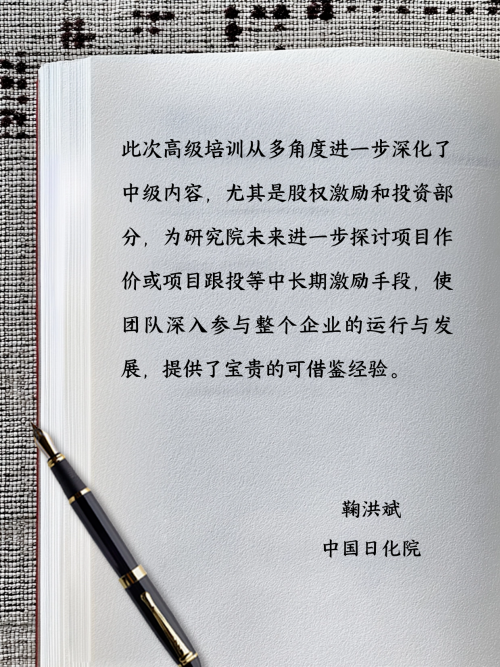 此次高级培训从多角度进一步深化了
中级内容，尤其是股权激励和投资部
分，为研究院未来进一步探讨项目作
价或项目跟投等中长期激励手段，使
团队深入参与整个企业的运行与发
展，提供了宝贵的可借鉴经验。
鞠洪斌
中国日化院